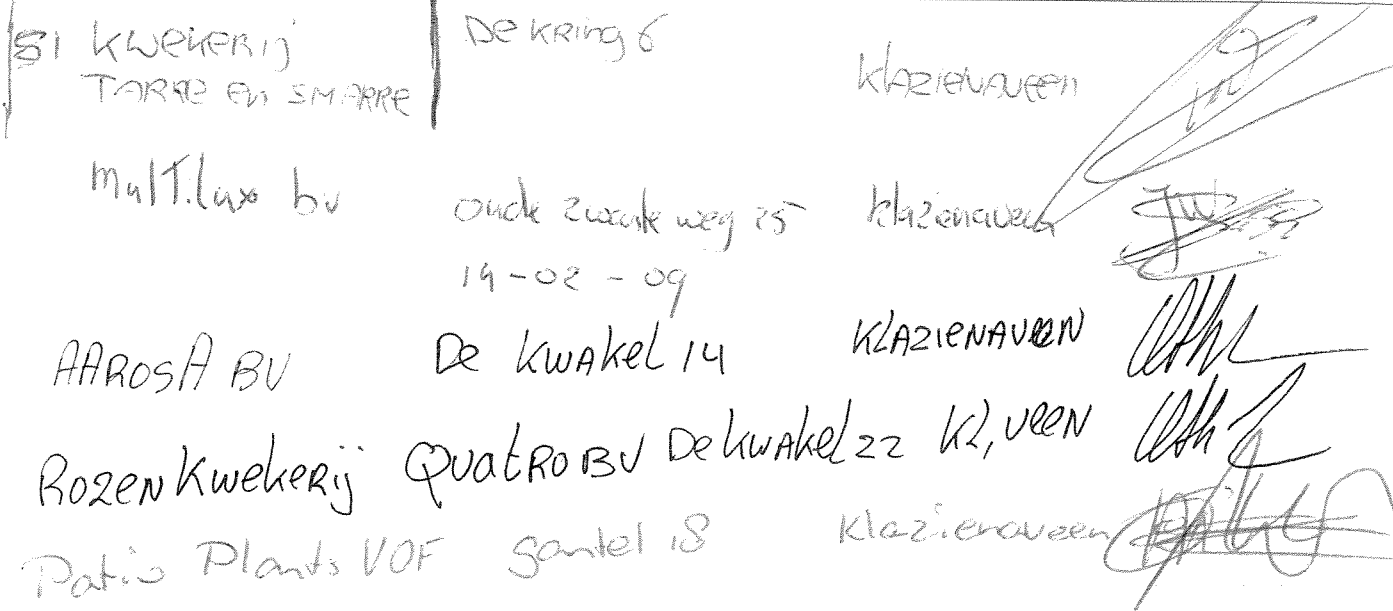 51 KWEKERIJ De KRING 6
TARRE EN SMARRE KLAZIENAVEEN
MulTilux bv oude zwarte weg 25 klazienaveen
14-02-09
AAROSA BV De KWAKEL 14 KLAZIENAVEEN
ROZENKWEKERIJ QUATRO BV De KWAKEL 22 KL, VEEN
Patio Plants VOF gantel 18 Klazienaveen